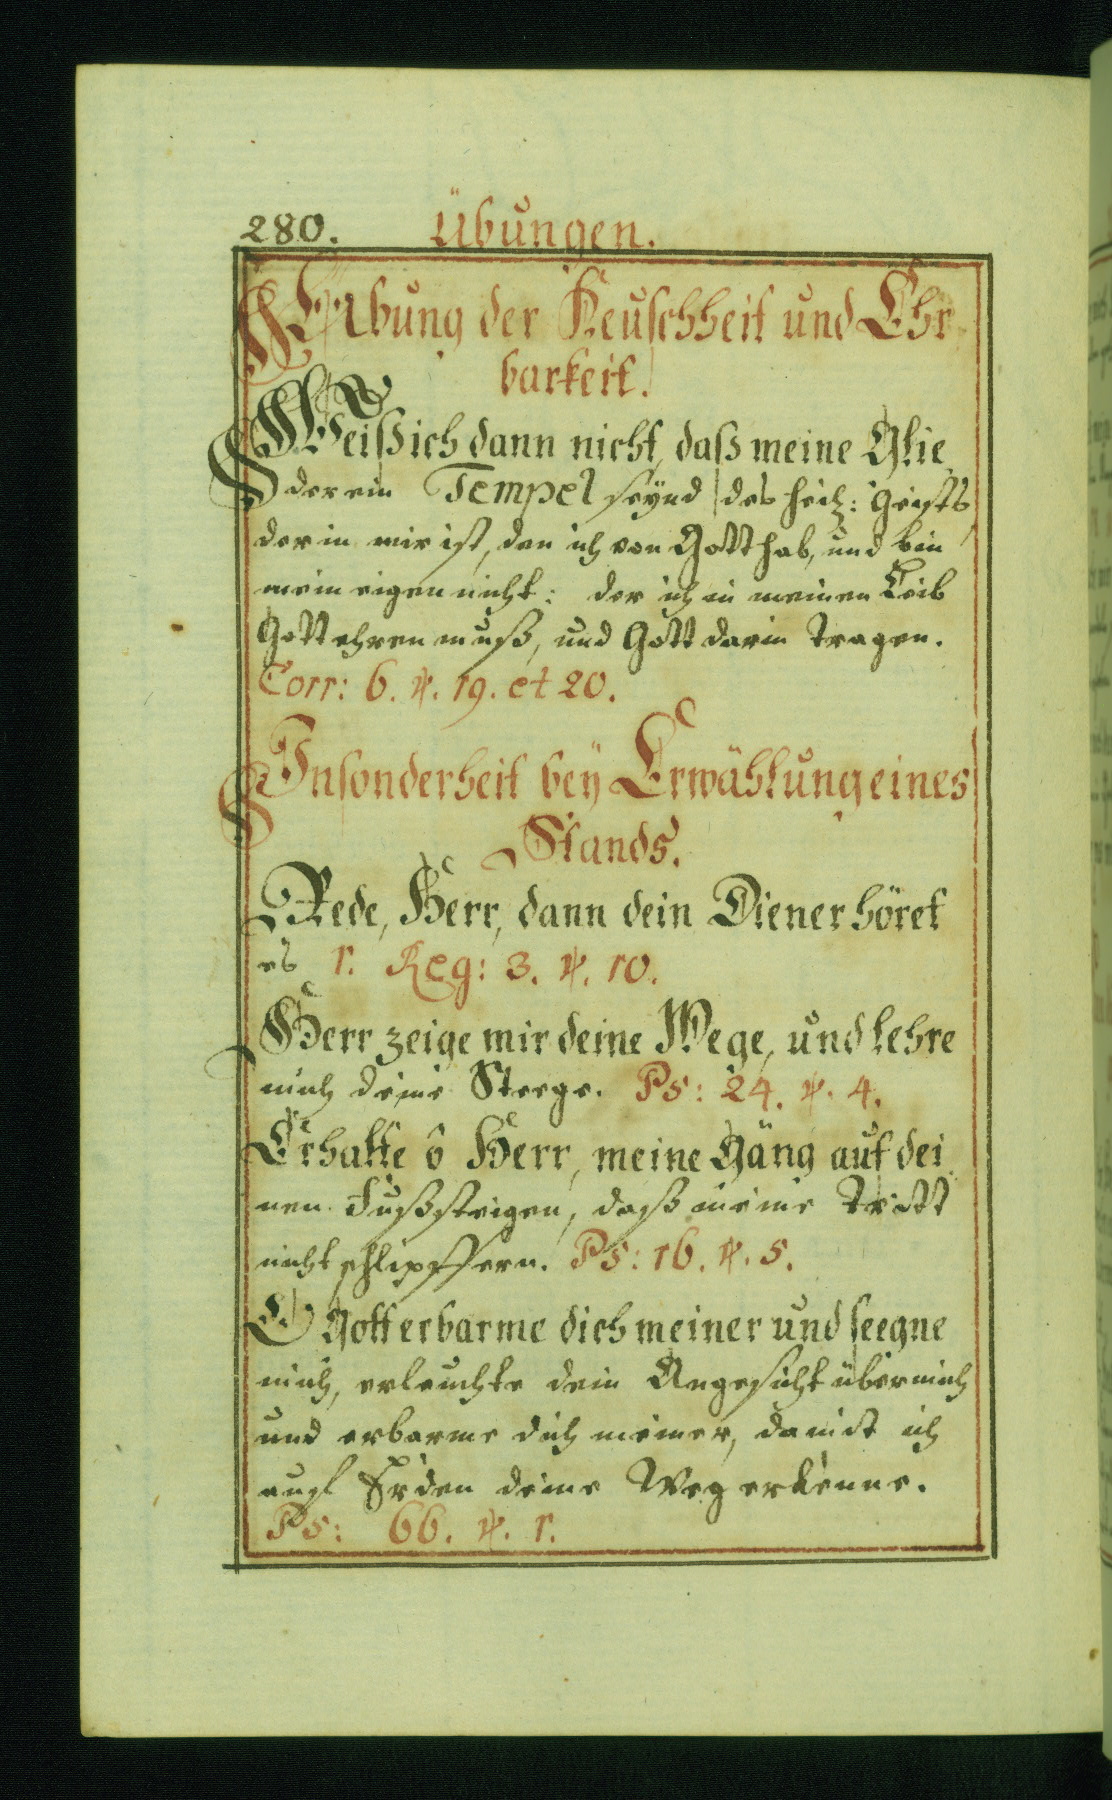 280. Übungen.
Übung der Keuschheit und Ehr
barkeit.
Weiß ich dann nicht, daß meine Glie
der ein Tempel seynd des heil: Geists
der in mir ist, den ich von Gott hab, und bin
mein eigen nicht: der ich in meinen Leib
Gott ehren muß, und Gott darin tragen.
Corr: 6. ℣. 19. et 20.
Insonderheit bey Erwählung eines
Stands.
Rede, Herr, dann dein Diener höret
es 1. Reg: 3. ℣. 10.
Herr zeige mir deine Wege, und lehre
mich deine Steege. Ps: 24. ℣. 4.
Erhalte ô Herr, meine Gäng auf dei
nen Fußsteigen, daß meine Tritt
nicht schlipffern. Ps: 16. ℣. 5.
O Gott erbarme dich meiner und seegne
mich, erleuchte dein Angesicht über mich
und erbarme dich meiner, damit ich
auf Erden deine Weg erkenne.
Ps: 66. ℣. 1.